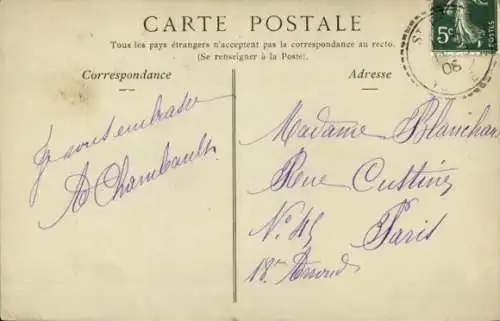 CARTE POSTALE
Tous les pays étrangers n'acceptent pas la correspondance au recto.
(Se renseigner à la Poste).
Correspondance
Adresse
Je vous embrasse
A Chambault
Madame Blanchar
Rue Custine
N° 45 Paris
18e Arrond
5c
POSTES
06